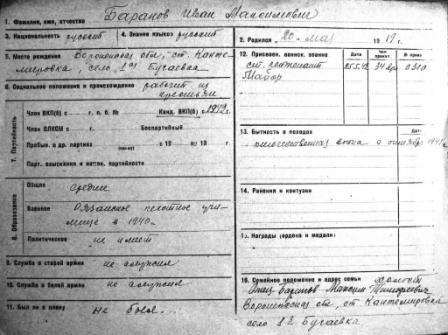 1. Фамилия, имя, отчество Баранов Иван Максимович
3. Национальность русский 4. Знание языков русский
5. Место рождения Воронежская обл., ст. Канте-
мировка, село 1ая Бугаевка
6. Социальное положение и происхождение рабочий из
крестьян
7. Партийность
Член ВКП(б) с г. п. б. № Канд. ВКП(б) с
Член ВЛКСМ с Беспартийный
Пребыв. в др. партиях с 19 по 19 г.
Парт. взыскания и матов. партийности
8. Образование
Общее среднее
Военное Рязанское пехотное учи-
лище в 1940г.
Политическое не имеет
9. Служба в старой армии не служил
10. Служба в белой армии не служил
11. Был ли в плену не был
2. Родился 20 мая 1919 г.
12. Присвоен. воинск. звания
ст. лейтенант
Майор
13. Бытность в походах
отечественная война с октября 1941г.
14. Ранения и контузии
15. Награды (ордена и медали)
16. Семейное положение и адрес семьи холост
Отец Баранов Максим Тимофеевич
Воронежская обл, ст Кантемировка
село 1я Бугаевка